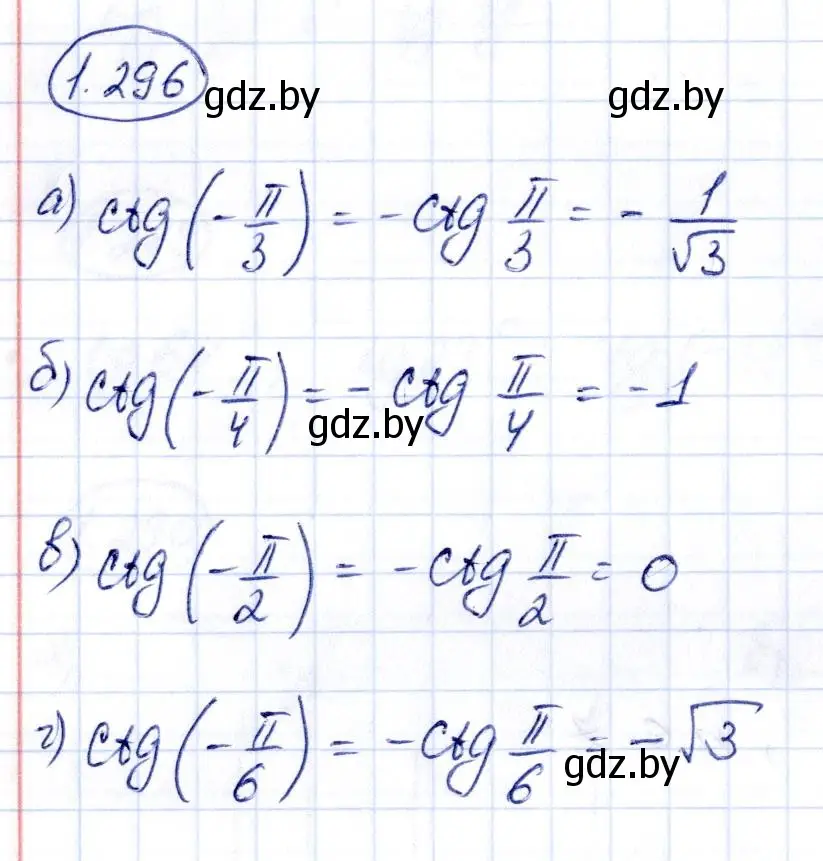 1.296 gdz.by gdz.by
а) ctg(-π/3) = -ctg π/3 = - 1/√3
б) ctg(-π/4) = - ctg π/4 = -1
gdz.by
в) ctg(-π/2) = -ctg π/2 = 0
г) ctg(-π/6) = -ctg π/6 = -√3
gdz.by